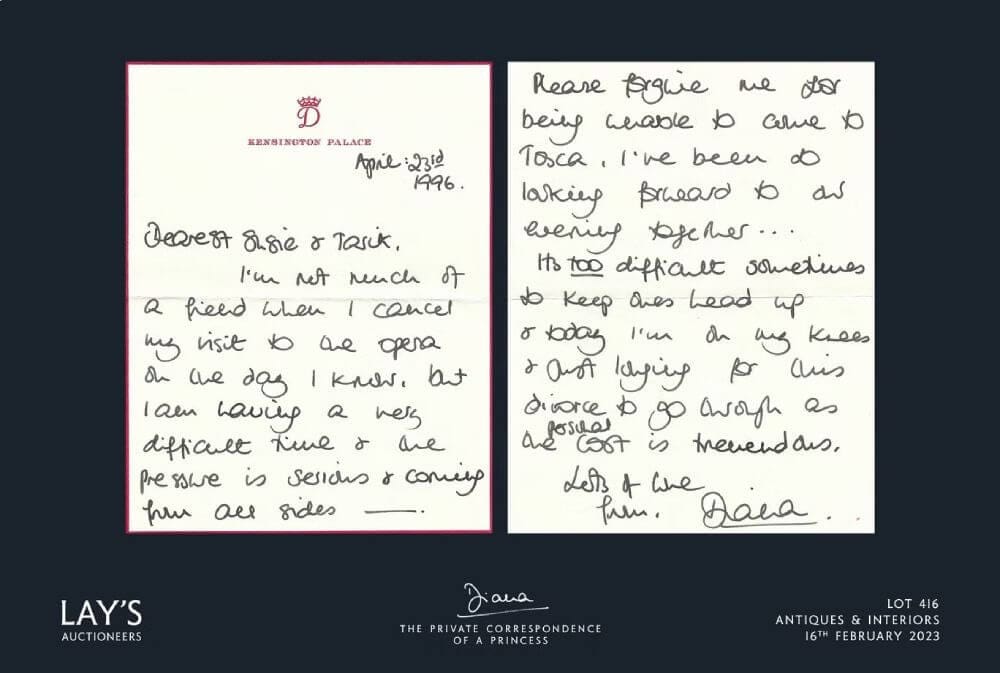 D
KENSINGTON PALACE
April: 23rd
1996.
Dearest Susie & Tarik,
I'm not much of
a friend when I cancel
my visit to the opera
on the day I know, but
I am having a very
difficult time & the
pressure is serious & coming
from all sides —.
Please forgive me for
being unable to come to
Tosca. I've been so
looking forward to our
evening together...
Its too difficult sometimes
to keep ones head up
& today I'm on my knees
& just longing for this
divorce to go through as
the possible cost is tremendous.
Lots of love
from, Diana.
LAY'S
AUCTIONEERS
Diana
THE PRIVATE CORRESPONDENCE
OF A PRINCESS
LOT 416
ANTIQUES & INTERIORS
16TH FEBRUARY 2023